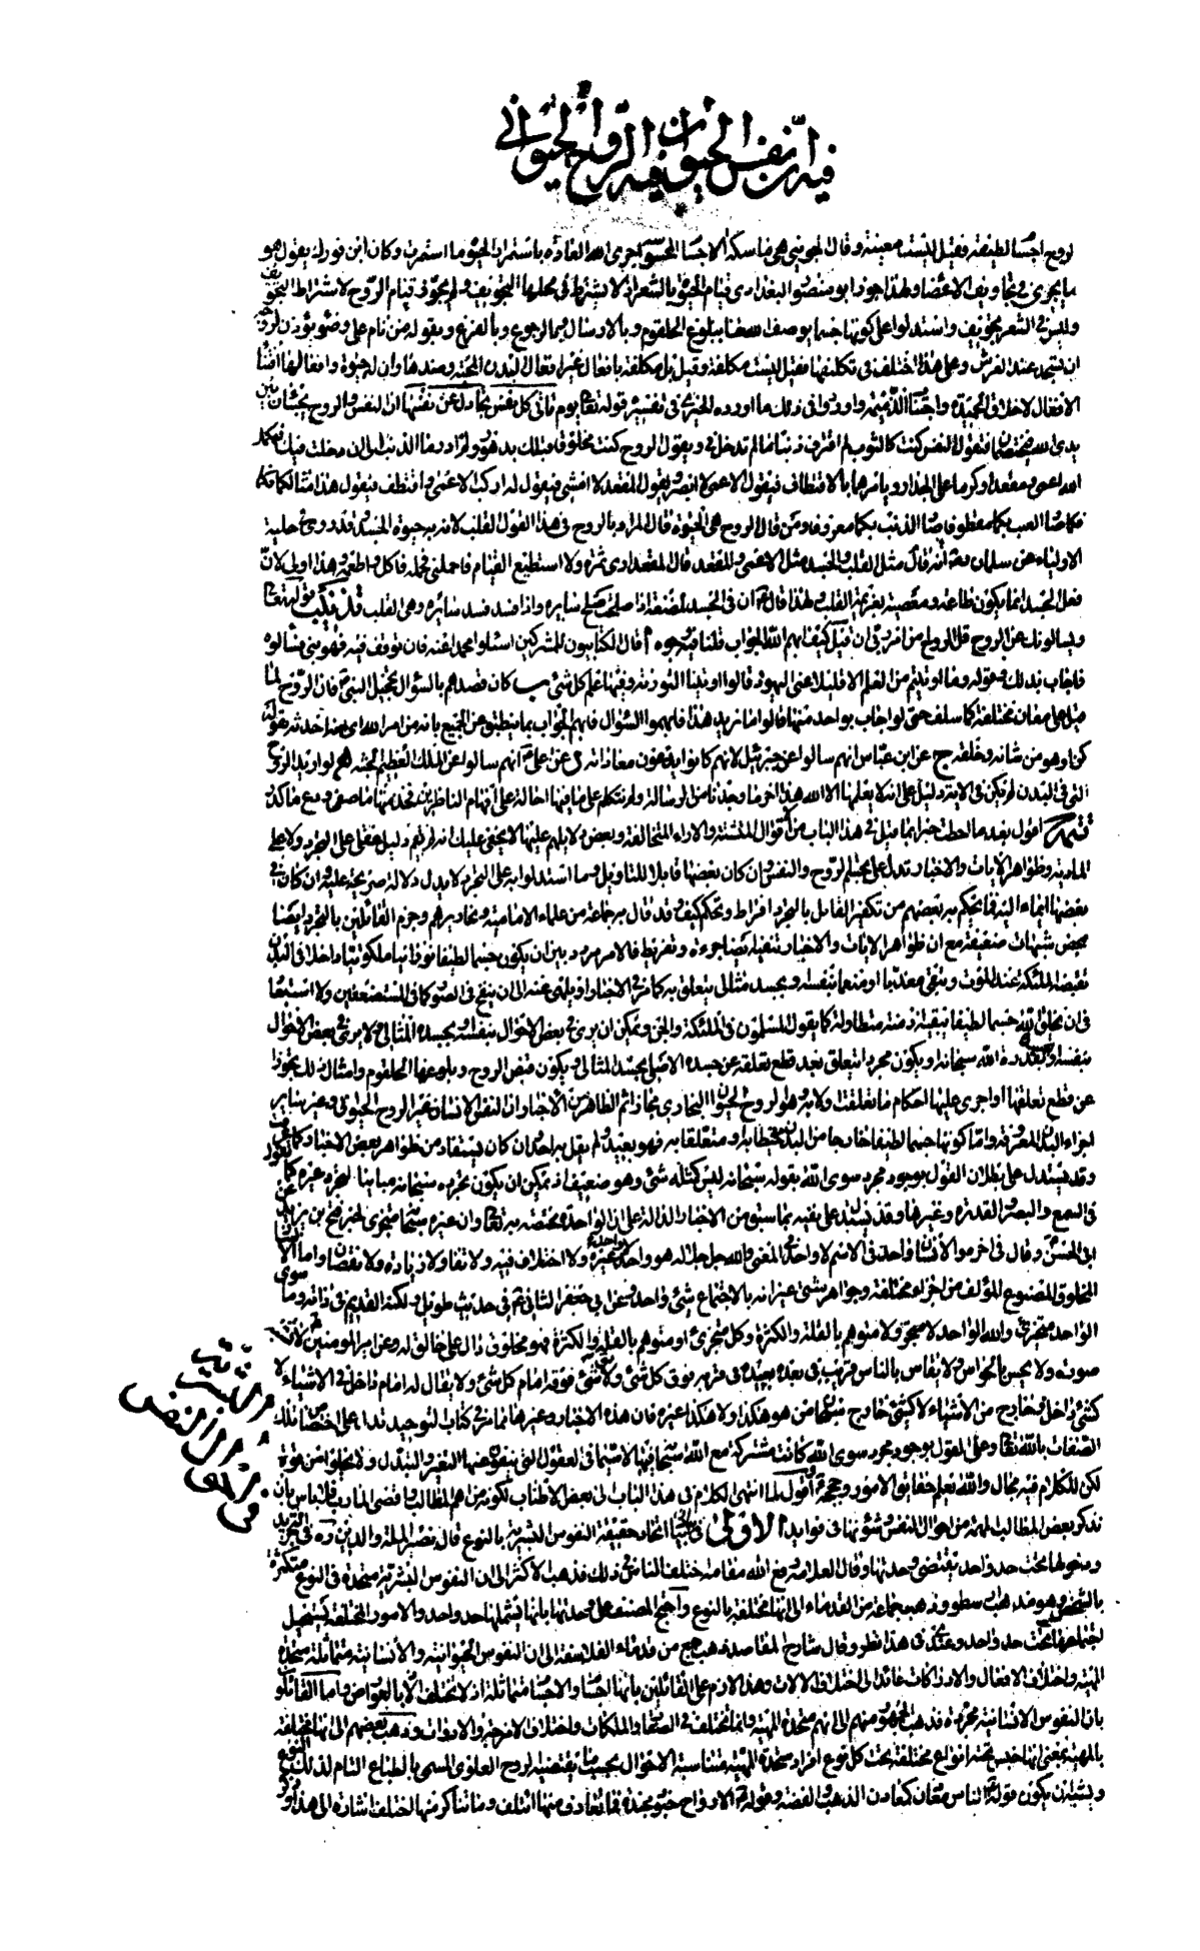 فيه ان نفس الحيوان فيه الروح الحيواني
الروح اجسام لطيفة فقيل ليست معينة وقال الجويني هي ماسكة الاجسام المحسوسة اجرى الله العادة باستمرار الحيوة ما استمرت وكان ابن فورك يقول هو
ما يجري في تجاويف الاعضاء ولهذا جوز ابو منصور البغدادي قيام الحيوة بالشعر اذ لا يشترط في محلها التجويف ولم يجوز قيام الروح لاشتراط التجويف
وليس في الشعر تجويف واستدلوا على كونها جسما بوصف الله لها ببلوغ الحلقوم وبالارسال وبالرجوع وبالفزع وبقوله من نام على وضوء يؤذن لروحه
ان تسجد عند العرش وعلى هذا اختلف في تكليفها فقيل ليست مكلفة وقيل بل مكلفة بافعال غير افعال البدن المحبة وضدها وان له حيوة وافعالها
الافعال لاخلاق الحميدة والذميمة واوردوا في ذلك ما اورده الحيري في تفسير قوله تعالى يوم تأتي كل نفس تجادل عن نفسها ان النفس والروح يجيئان بين
يدي الله فيختصمان فتقول النفس كنت كالثوب لم اقترف ذنبا ما لم تدخل في ويقول الروح كنت مخلوقا قبلك بدهور ولم ادر ما الذنب الى ان دخلت فيك فيمثل
الله اعمى ومقعدا وكرما على الجدار ويأمرهما بالاقتطاف فيقول الاعمى لا ابصر ويقول المقعد لا امشي فيقول له اركب الاعمى واقتطف فيقول هذا مثالكما
فكما صار العنب بكما مقطوفا صار الذنب بكما معروفا ومن قال الروح هي الحيوة قال المراد بالروح في هذا القول القلب لان به حيوة الجسد وقد روى في حلية
الاولياء عن سلمان انه قال مثل القلب والجسد مثل الاعمى والمقعد قال المقعد ارى ثمرة ولا استطيع القيام فاحملني فحمله فاكل واطعمه وهذا اولى لان
فعل الجسد انما يكون طاعة ومعصية بعزيمة القلب ولهذا قال ان في الجسد لمضغة اذا صلحت صلح سايره واذا فسد فسد سائره وهي القلب تذنيب قوله تعالى
ويسألونك عن الروح قل الروح من امر ربي ان قيل كيف ابهم الله الجواب قلنا فيه وجوه أ قال الكتابيون للمشركين اسئلوا محمدا عنه فان توقف فيه فهو نبي فسألوه
فاجاب بذلك وقوله وما اوتيتم من العلم الا قليلا عنى اليهود قالوا اوتينا التورية وفيها علم كل شيء ب كان قصدهم بالسؤال تخجيل النبي فان الروح لما
قيل على معان مختلفة كما سلف حتى لو اجاب بواحد منها قالوا ما نريد هذا فابهموا السؤال فابهم الجواب بما ينطبق عن الجميع بانه من امر الله اي مما احدثه بقوله
كن او هو من شانه وخلقه ج عن ابن عباس انهم سألوا عن جبرئيل لانهم كانوا يدعون معاداته د عن علي انهم سألوا عن الملك العظيم الجثة لو اريد الروح
التي في البدن لم يكن في الاية دليل على انه لا يعلمها الا الله هذا اخر ما وجدنا من الرسالة ولم نتكلم على ما فيها احالة على افهام الناظرين فخذ منها ما صفى ودع ما كدر
تتميم اقول بعد ما احطت خبرا بما قيل في هذا الباب من الاقوال المتشتتة والاراء المتخالفة وبعض دلائلهم عليها لا يخفى عليك انه لم يقم دليل عقلي على التجرد ولا على
المادية وظواهر الايات والاخبار تدل على تجسم الروح والنفس وان كان بعضها قابلا للتاويل وما استدلوا به على التجرد لا يدل دلالة صريحة عليه وان كان في
بعضها ايماء اليه فما يحكم به بعضهم من تكفير القائل بالتجرد افراط وتحكم كيف وقد قال به جماعة من علماء الامامية ونحاريرهم وجزم القائلين بالتجرد ايضا
بمحض شبهات ضعيفة مع ان ظواهر الايات والاخبار تنفيه ايضا جرءة وتفريط فالامر مردد بين ان يكون جسما لطيفا نورانيا ملكوتيا داخلا في البدن
تقبضه الملئكة عند الموت وتبقى معذبا او منعما بنفسه او بجسد مثالي يتعلق به كما مر في الاخبار او يلهى عنه الى ان ينفخ في الصور كما في المستضعفين ولا استبعاد
في ان يخلق الله جسما لطيفا يبقيه ازمنة متطاولة كما يقول المسلمون في الملئكة والجن ويمكن ان يرى في بعض الاحوال بنفسه او بجسده المثالي ولا يرى في بعض الاحوال
بنفسه او بجسده بقدرة الله سبحانه او يكون مجردا يتعلق بعد قطع تعلقه عن جسده الاصلي بجسد المثالي ويكون قبض الروح وبلوغها الحلقوم وامثال ذلك تجوزا
عن قطع تعلقها او اجرى عليها احكام ما تعلقت اولا به وهو الروح الحيواني البخاري مجازا ثم الظاهر من الاخبار ان النفس الانساني غير الروح الحيواني وغير سائر
اجزاء البدن المعروفة واما كونها جسما لطيفا خارجا من البدن محيطا به او متعلقا به فهو بعيد ولم يقل به احد وان كان يستفاد من ظواهر بعض الاخبار كما عرفت
وقد يستدل على بطلان القول بوجود مجرد سوى الله بقوله سبحانه ليس كمثله شيء وهو ضعيف اذ يمكن ان يكون تجرده سبحانه مباينا لتجرد غيره كما نقول
في السمع والبصر والقدرة وغيرها وقد يستدل على نفيه بما سبق من الاخبار الدالة على ان الواحدة مختصة به تعالى وان غيره سبحانه متجزي كخبر فتح بن يزيد عن
ابي الحسن وقال في اخره والانسان واحد في الاسم لا واحد في المعنى والله جل جلاله هو واحد لا واحد غيره ولا اختلاف فيه ولا تفاوت ولا زيادة ولا نقصان واما الانسان
المخلوق المصنوع المؤلف من اجزاء مختلفة وجواهر شتى غير انه بالاجتماع شيء واحد وعن ابي جعفر الثاني في حديث طويل ولكنه القديم في ذاته وما سوى
الواحد متجزئ والله الواحد لا متجزئ ولا متوهم بالقلة والكثرة وكل متجزئ او متوهم بالقلة والكثرة فهو مخلوق دال على خالق له وعن امير المؤمنين لا تشبهه
صورة ولا يحس بالحواس ولا يقاس بالناس قريب في بعده بعيد في قربه فوق كل شيء ولا يقال شيء فوقه امام كل شيء ولا يقال له امام داخل في الاشياء لا
كشيء داخل وخارج من الاشياء لا كشيء خارج سبحان من هو هكذا ولا هكذا غيره فان هذه الاخبار وغيرها مما مر في كتاب التوحيد تدل على اختصاص تلك
الصفات بالله تعالى وعلى القول بوجود مجرد سوى الله كانت مشتركة مع الله سبحانه فيها لا سيما في العقول التي ينفون عنها التغير والتبدل ولا يخلو من قوة
لكن للكلام فيه مجال والله يعلم حقايق الامور وحججه اقول لما انتهى الكلام في هذا الباب الى بعض الاطناب لكونه من اهم المطالب واقصى المارب فلا بأس بان
نذكر بعض المطالب المهمة من احوال النفس وشؤنها في فوايد الاولى في بيان اتحاد حقيقة النفوس البشرية بالنوع قال نصير الملة والدين ره في التجريد
ودخولها تحت حد واحد يقتضي وحدتها وقال العلامة رفع الله مقامه اختلف الناس في ذلك فذهب الاكثر الى ان النفوس البشرية متحدة في النوع متكثرة
بالشخص وهو مذهب ارسطو وذهب جماعة من القدماء الى انها مختلفة بالنوع واحتج المصنف على وحدتها بانها يشملها حد واحد والامور المختلفة يستحيل
اجتماعها تحت حد واحد وعندي في هذا نظر وقال شارح المقاصد ذهب جمع من قدماء الفلاسفة الى ان النفوس الحيوانية والانسانية متماثلة متحدة
المهية واختلاف الافعال والادراكات عائد الى اختلاف الالات وهذا لازم على القائلين بانها اجسام والاجسام متماثلة اذ لا تختلف الا بالعوارض واما القائلون
بان النفوس الانسانية مجردة فذهب الجمهور منهم الى انهم متحدة المهية وانما تختلف في الصفات والملكات واختلاف الامزجة والادوات وذهب بعضهم الى انها مختلفة
بالمهية بمعنى انها جنس تحته انواع مختلفة تحت كل نوع افراد متحدة المهية متناسبة الاحوال بحسب ما يقتضيه الروح العلوي المسمى بالطباع التام لذلك النوع
ويشبه ان يكون قوله الناس معادن كمعادن الذهب والفضة وقوله الارواح جنود مجندة فما تعارف منها ائتلف وما تناكر منها اختلف اشارة الى هذا